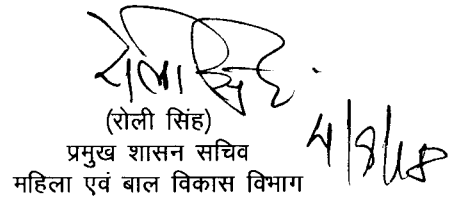 रोली सिंह
(रोली सिंह)
प्रमुख शासन सचिव
महिला एवं बाल विकास विभाग
4/8/18